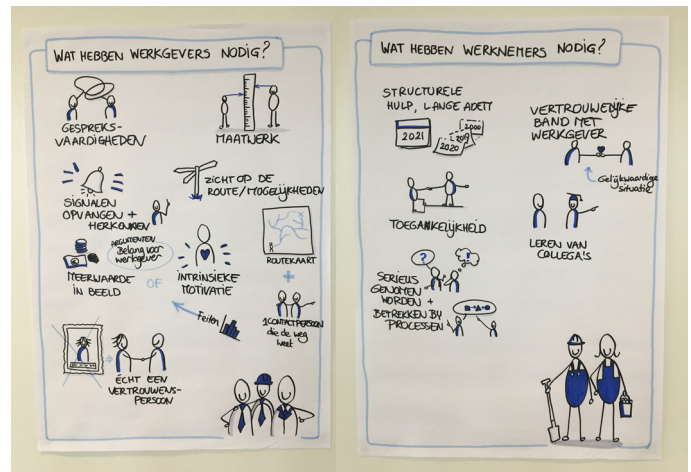 WAT HEBBEN WERKGEVERS NODIG?
GESPREKS-
VAARDIGHEDEN
MAATWERK
SIGNALEN
OPVANGEN +
HERKENNEN
ZICHT OP DE
ROUTE/MOGELIJKHEDEN
ARGUMENTEN
Belang voor
werkgever
MEERWAARDE
IN BEELD
OF
INTRINSIEKE
MOTIVATIE
ROUTEKAART
+
Feiten
1 CONTACTPERSOON
die de weg
weet
ÉCHT EEN
VERTROUWENS-
PERSOON
WAT HEBBEN WERKNEMERS NODIG?
STRUCTURELE
HULP, LANGE ADEM
2021
2020
2019
2000
VERTROUWELIJKE
BAND MET
WERKGEVER
Gelijkwaardige
situatie
TOEGANKELIJKHEID
LEREN VAN
COLLEGA'S
?
!
SERIEUS
GENOMEN
WORDEN +
BETREKKEN BY
PROCESSEN